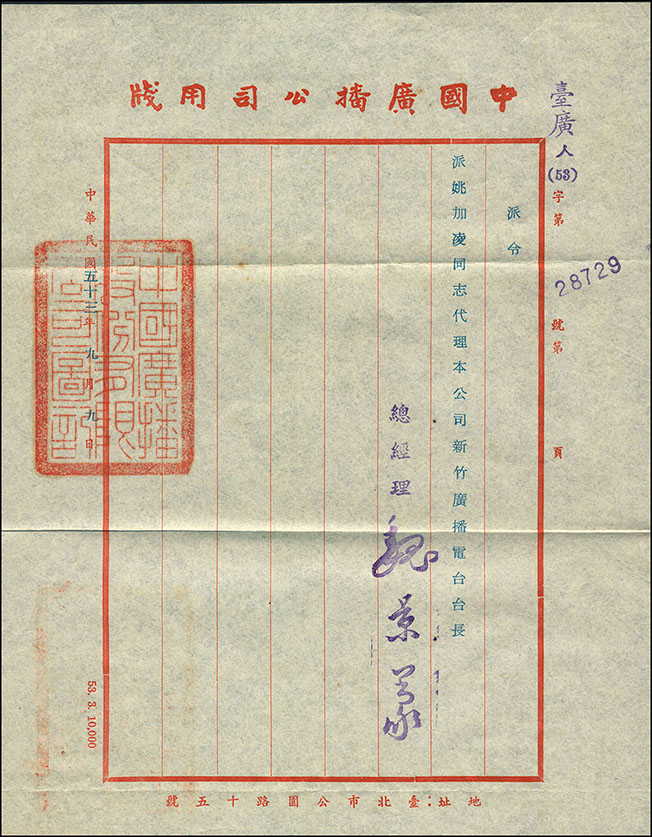 中國廣播公司用牋
臺廣人(53)字第28729號第 頁
派令
派姚加凌同志代理本公司新竹廣播電台台長
總經理 魏景蒙
中華民國五十三年九月九日
中國廣播股份有限公司圖記
53. 3. 10,000
地址：臺北市公園路十五號